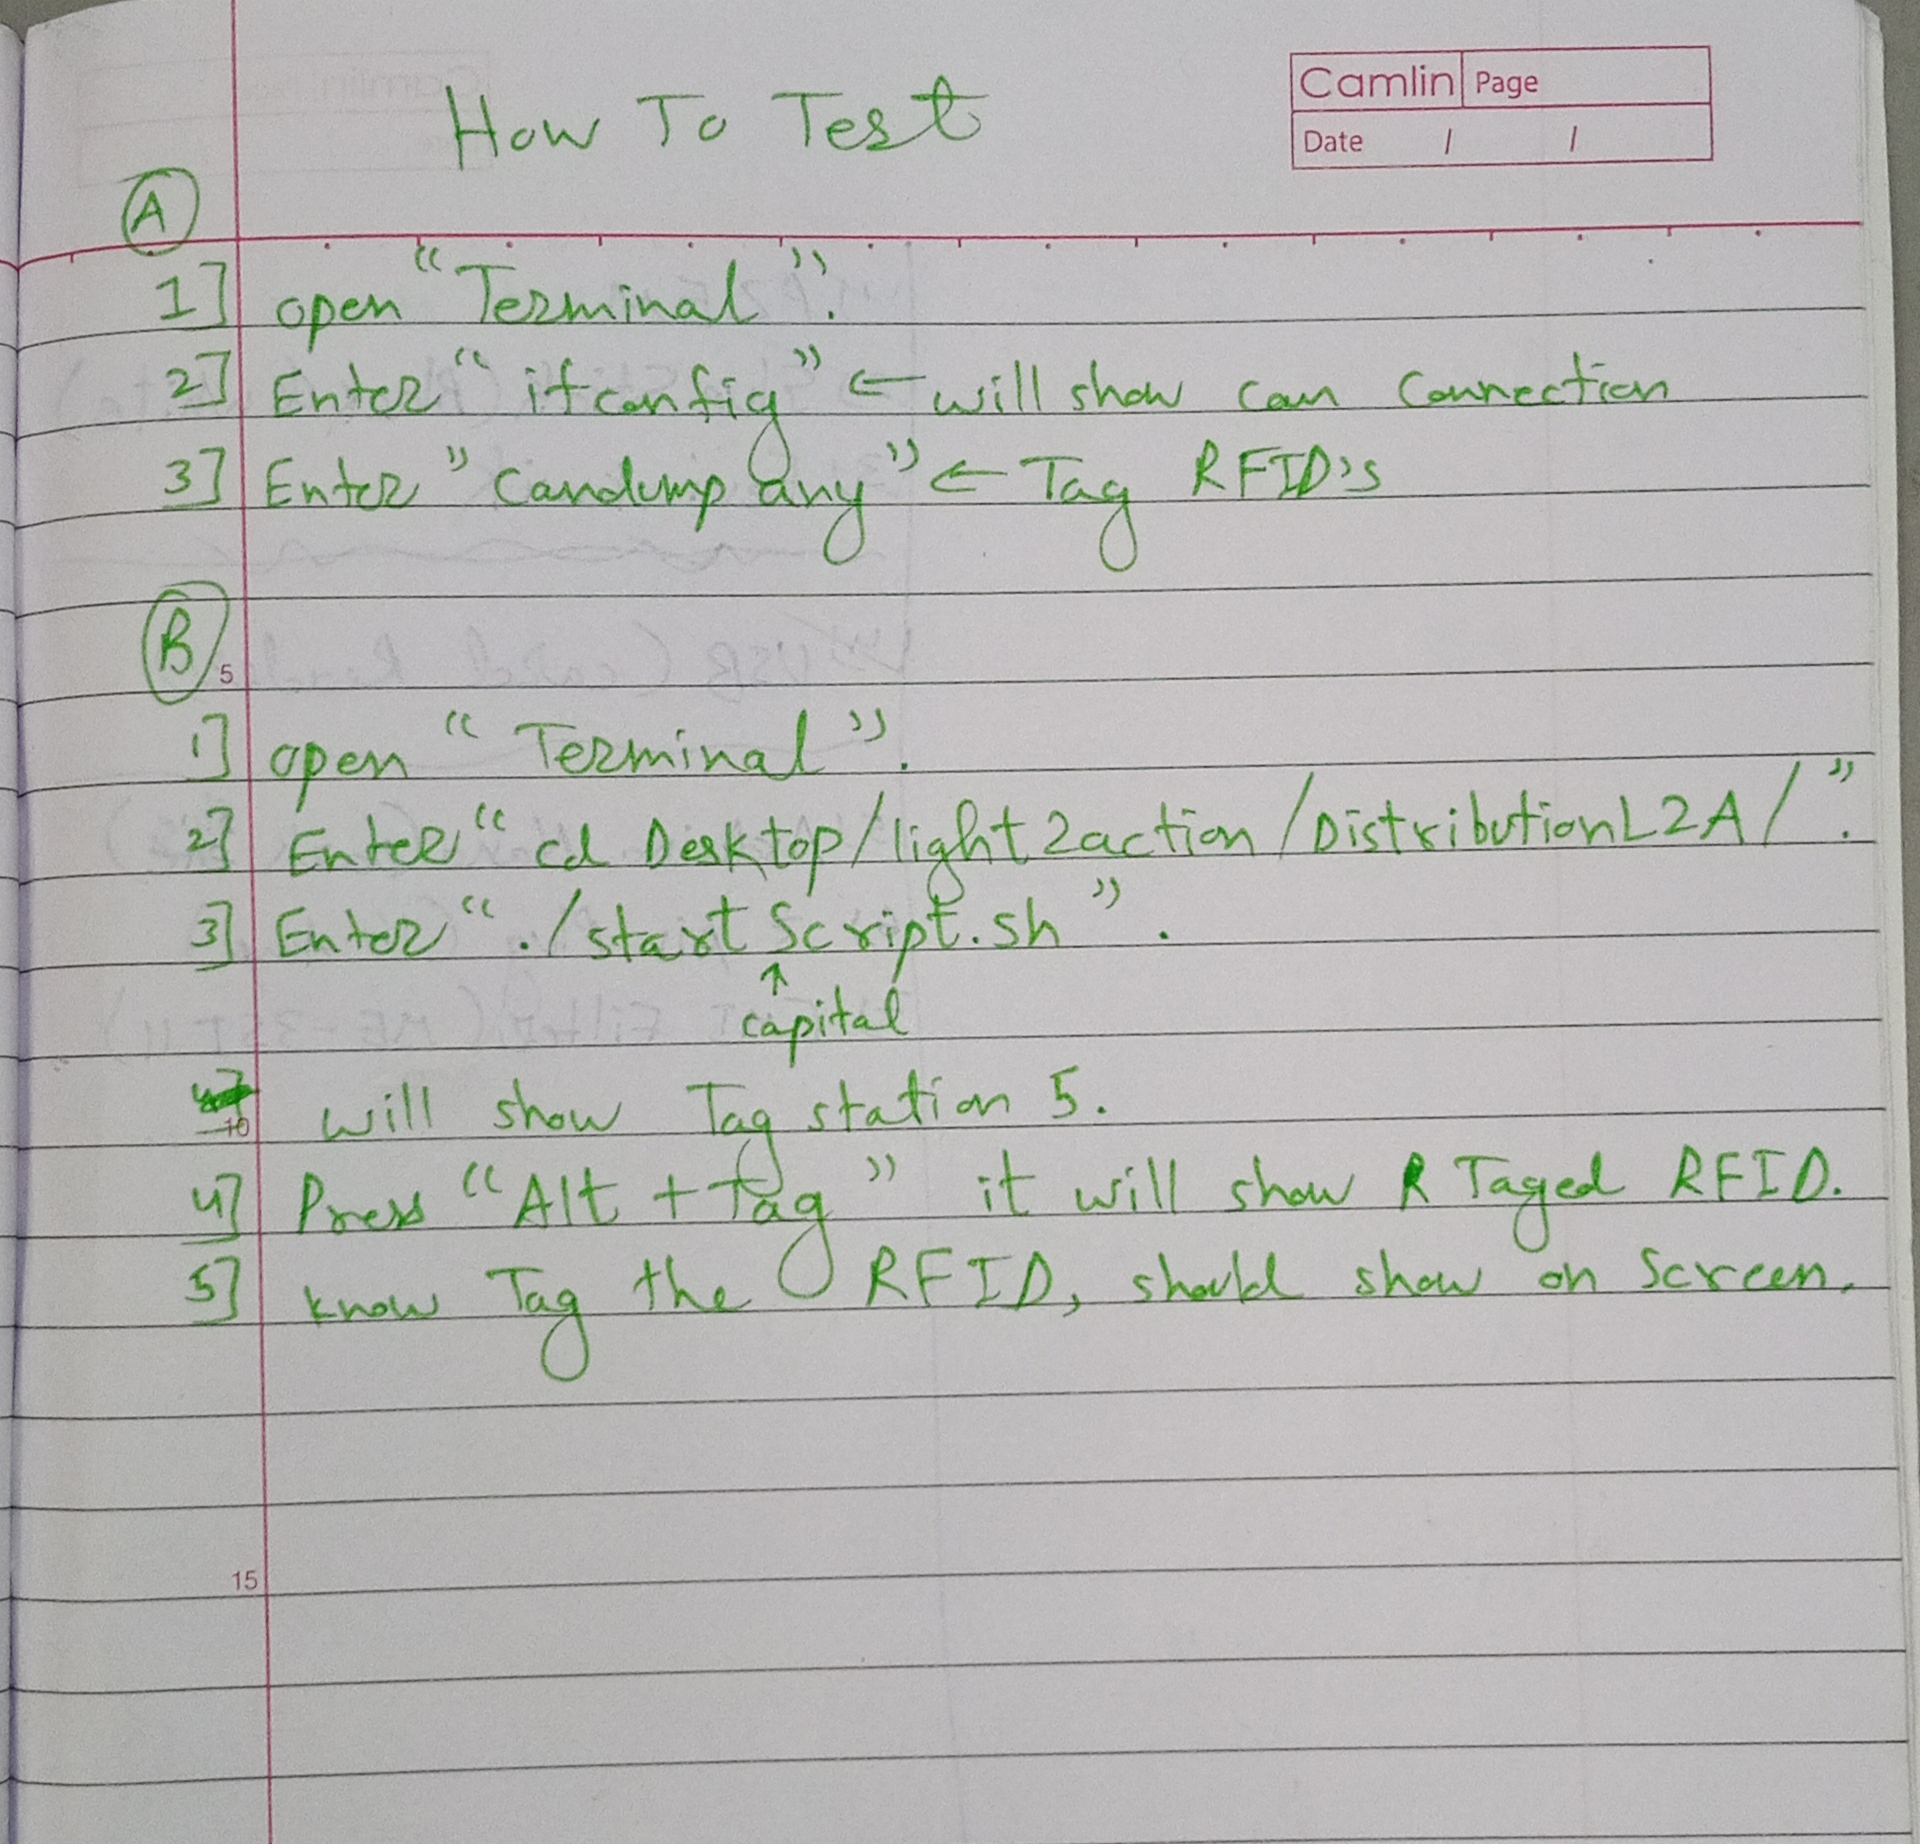 How To Test
Camlin Page
Date / /
A
1] open "Terminal".
2] Enter "ifconfig" ← will show can connection
3] Enter "candump any" ← Tag RFID's
B
5
1] open "Terminal".
2] Enter "cd Desktop/light2action/DistributionL2A/".
3] Enter "./startScript.sh".
↑
capital
10
will show Tag station 5.
4] Press "Alt + tag" it will show Taged RFID.
5] know Tag the RFID, should show on screen.
15